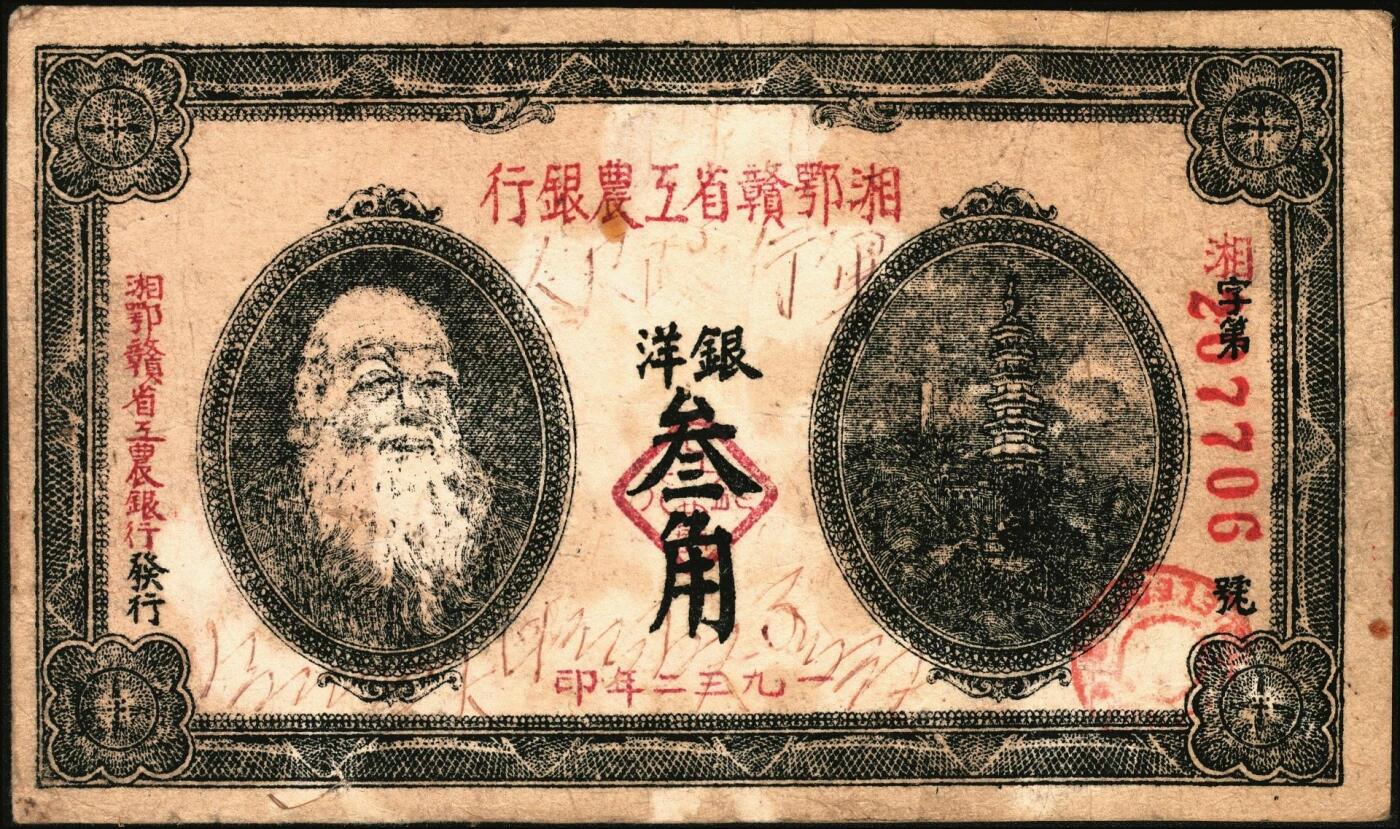 湘鄂贛省工農銀行
銀洋
叁角
一九三二年印
湘字第2077706號
湘鄂贛省工農銀行發行